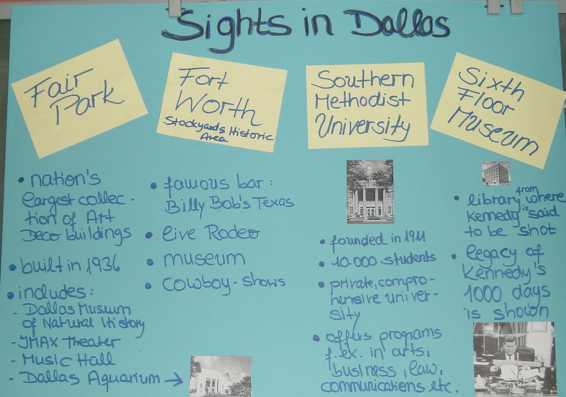 Sights in Dallas
Fair
Park
• nation's
largest collec-
tion of Art
Deco buildings
• built in 1936
• includes:
- Dallas Museum
of Natural History
- IMAX Theater
- Music Hall
- Dallas Aquarium →
Fort
Worth
Stockyards Historic
Area
• famous bar:
Billy Bob's Texas
• live Rodeo
• museum
• cowboy-shows
Southern
Methodist
University
• founded in 1911
• 10.000 students
• private, compre-
hensive univer-
sity
• offers programs
f. ex. in arts,
business, law,
communications etc.
Sixth
Floor
Museum
• library from where
Kennedy is said
to be shot
• legacy of
Kennedy's
1000 days
is shown